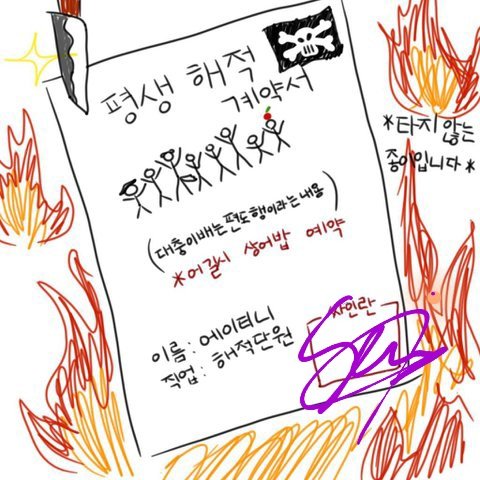 평생 해적
계약서
*타지 않는
종이입니다*
(대충이배는편도행이라는내용)
*어길시 상어밥 예약
사인란
이름: 에이티니
직업: 해적단원